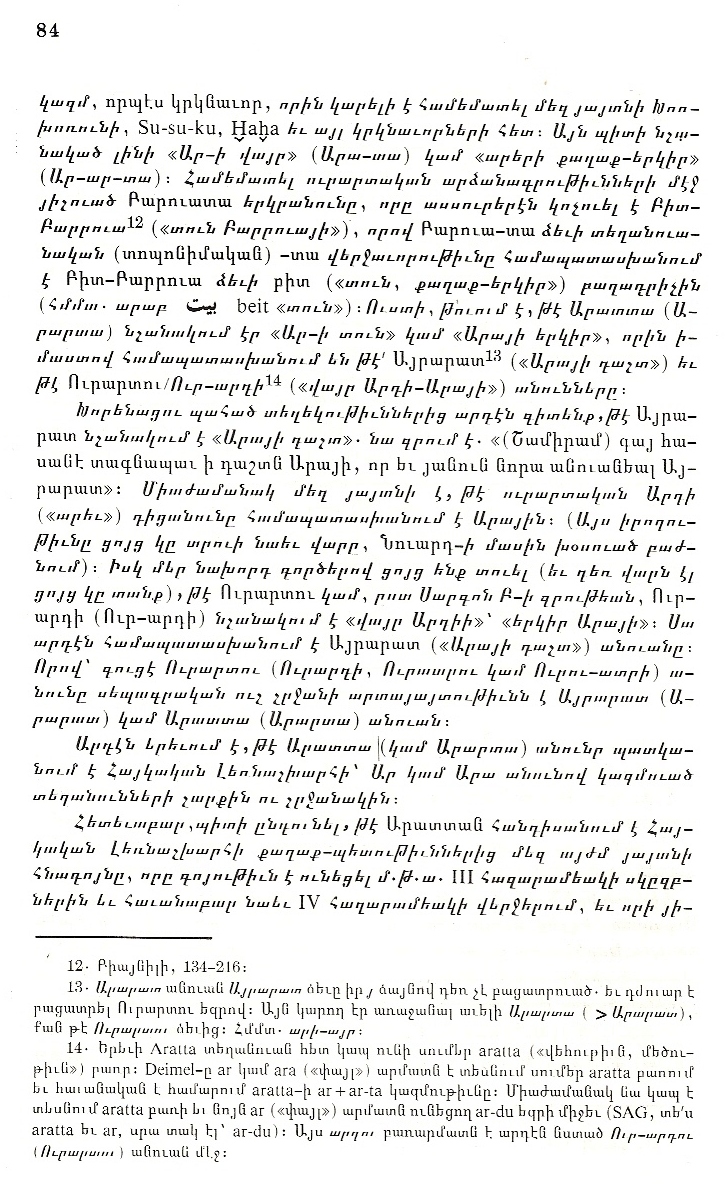 84
կազմ, որպէս կրկնաւոր, որին կարելի է համեմատել մեզ յայտնի Խոռ-
խոռունի, Su-su-ku, Ḫaḫa եւ այլ կրկնաւորների հետ։ Այն պիտի նշա-
նակած լինի «Ար-ի վայր» (Արա-տա) կամ «արերի քաղաք-երկիր»
(Ար-ար-տա)։ Համեմատել ուրարտական արձանագրութիւնների մէջ
յիշուած Բարուատա երկրանունը, որը ասսուրերէն կոչուել է Բիտ-
Բարրուա12 («տուն Բարրուայի»), որով Բարուա-տա ձեւի տեղանուա-
նական (տոպոնիմական) -տա վերջաւորութիւնը համապատասխանում
է Բիտ-Բարրուա ձեւի բիտ («տուն, քաղաք-երկիր») բաղադրիչին
(հմմտ. արաբ بيت beit «տուն»)։ Ուստի, թւում է, թէ Արատտա (Ա-
րարտա) նշանակում էր «Ար-ի տուն» կամ «Արայի երկիր», որին ի-
մաստով համապատասխանում են թէ՛ Այրարատ13 («Արայի դաշտ») եւ
թէ Ուրարտու/Ուր-արդի14 («վայր Արդի-Արայի») անունները։
Խորենացու պահած տեղեկութիւններից արդէն գիտենք, թէ Այրա-
րատ նշանակում է «Արայի դաշտ». նա գրում է. «(Շամիրամ) գայ հա-
սանէ տագնապաւ ի դաշտն Արայի, որ եւ յանուն նորա անուանեալ Այ-
րարատ»։ Միաժամանակ մեզ յայտնի է, թէ ուրարտական Արդի
(«արեւ») դիցանունը համապատասխանում է Արային։ (Այս իրողու-
թիւնը ցոյց կը տրուի նաեւ վարը, Նուարդ-ի մասին խօսուած բաժ-
նում)։ Իսկ մեր նախորդ գործերով ցոյց ենք տուել (եւ դեռ վարն էլ
ցոյց կը տանք), թէ Ուրարտու կամ, ըստ Սարգոն Բ-ի գրութեան, Ուր-
արդի (Ուր-արդի) նշանակում է «վայր Արդիի»՝ «երկիր Արայի»։ Սա
արդէն համապատասխանում է Այրարատ («Արայի դաշտ») անուանը։
Որով՝ գուցէ Ուրարտու (Ուրարդի, Ուրաալու կամ Ուրու-ատրի) ա-
նունը սեպագրական ուշ շրջանի արտայայտութիւնն է Այրարատ (Ա-
րարատ) կամ Արատտա (Արարտա) անուան։
Արդէն երեւում է, թէ Արատտա (կամ Արարտա) անունը պատկա-
նում է Հայկական Լեռնաշխարհի՝ Ար կամ Արա անունով կազմուած
տեղանունների շարքին ու շրջանակին։
Հետեւաբար, պիտի ընդունել, թէ Արատտան հանդիսանում է Հայ-
կական Լեռնաշխարհի քաղաք-պետութիւններից մեզ այժմ յայտնի
հնագոյնը, որը գոյութիւն է ունեցել մ.թ.ա. III հազարամեակի սկըզբ-
ներին եւ հաւանաբար նաեւ IV հազարամեակի վերջերում, եւ որի յի-
12. Բիայնիլի, 134–216։
13. Արարատ անուան Այրարատ ձեւը իր յ ձայնով դեռ չէ բացատրուած. եւ դժուար է
բացատրել Ուրարտու եզրով։ Այն կարող էր առաջանալ աւելի Արարտա ( > Արարատ),
քան թէ Ուրարտու ձեւից։ Հմմտ. արի-այր։
14. Երեւի Aratta տեղանուան հետ կապ ունի սումեր aratta («վեհութիւն, մեծու-
թիւն») բառը։ Deimel-ը ar կամ ara («փայլ») արմատն է տեսնում սումեր aratta բառում
եւ հաւանական է համարում aratta-ի ar + ar-ta կազմութիւնը։ Միաժամանակ նա կապ է
տեսնում aratta բառի եւ նոյն ar («փայլ») արմատն ունեցող ar-du եզրի միջեւ (SAG, տե՛ս
aratta եւ ar, սրա տակ էլ՝ ar-du)։ Այս արդու բառարմատն է արդէն նստած Ուր-արդու
(Ուրարտու) անուան մէջ։